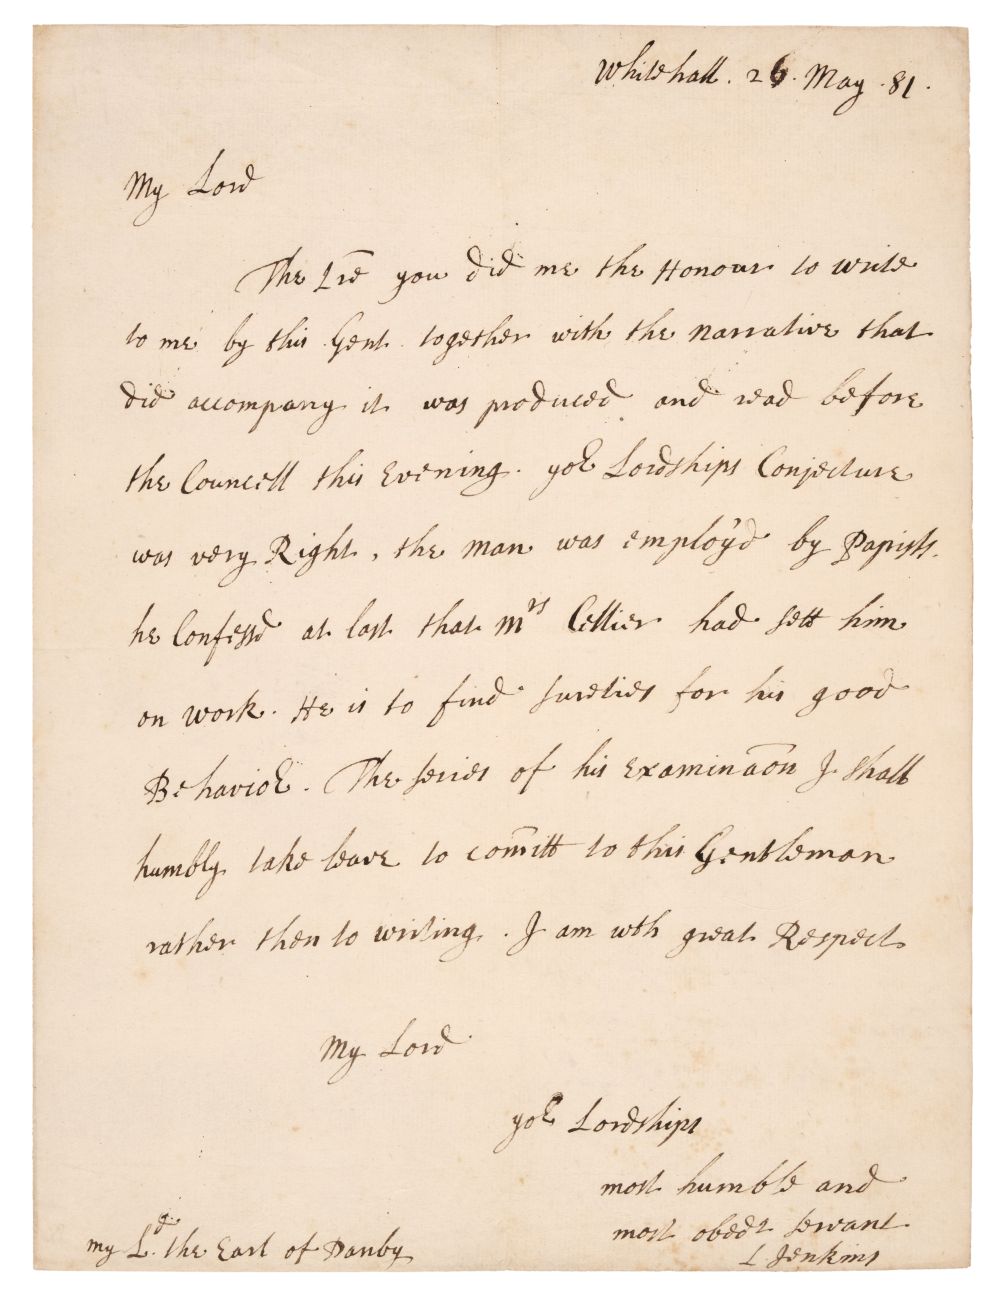 Whitehall. 26. May. 81.
My Lord
The Lrē you did me the Honour to write
to me by this Gent. together with the narrative that
did accompany it was produced and read before
the Councell this Evening. yor Lordships Conjecture
was very Right, the man was employ'd by Papists.
he Confessd at last that Mrs Cellier had sett him
on work. He is to find sureties for his good
Behavior. The series of his Examinaōn I shall
humbly take leave to com̄itt to this Gentleman
rather then to writing. I am wth great Respect
My Lord
yor Lordships
most humble and
most obedt servant
L Jenkins
my Ld. the Earl of Danby